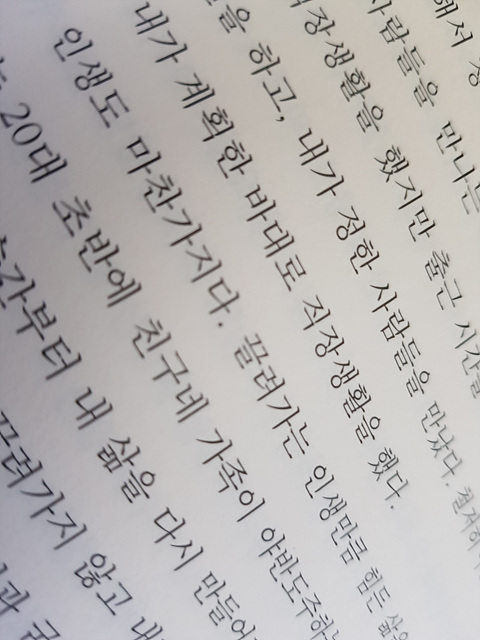 해서
사람들을 만나는
직장생활을 했지만 출근 시간을
을 하고, 내가 정한 사람들을 만났다. 철저히
내가 계획한 바대로 직장생활을 했다.
인생도 마찬가지다. 끌려가는 인생만큼 힘든 삶
20대 초반에 친구네 가족이 야반도주하는
순간부터 내 삶을 다시 만들어
끌려가지 않고 내